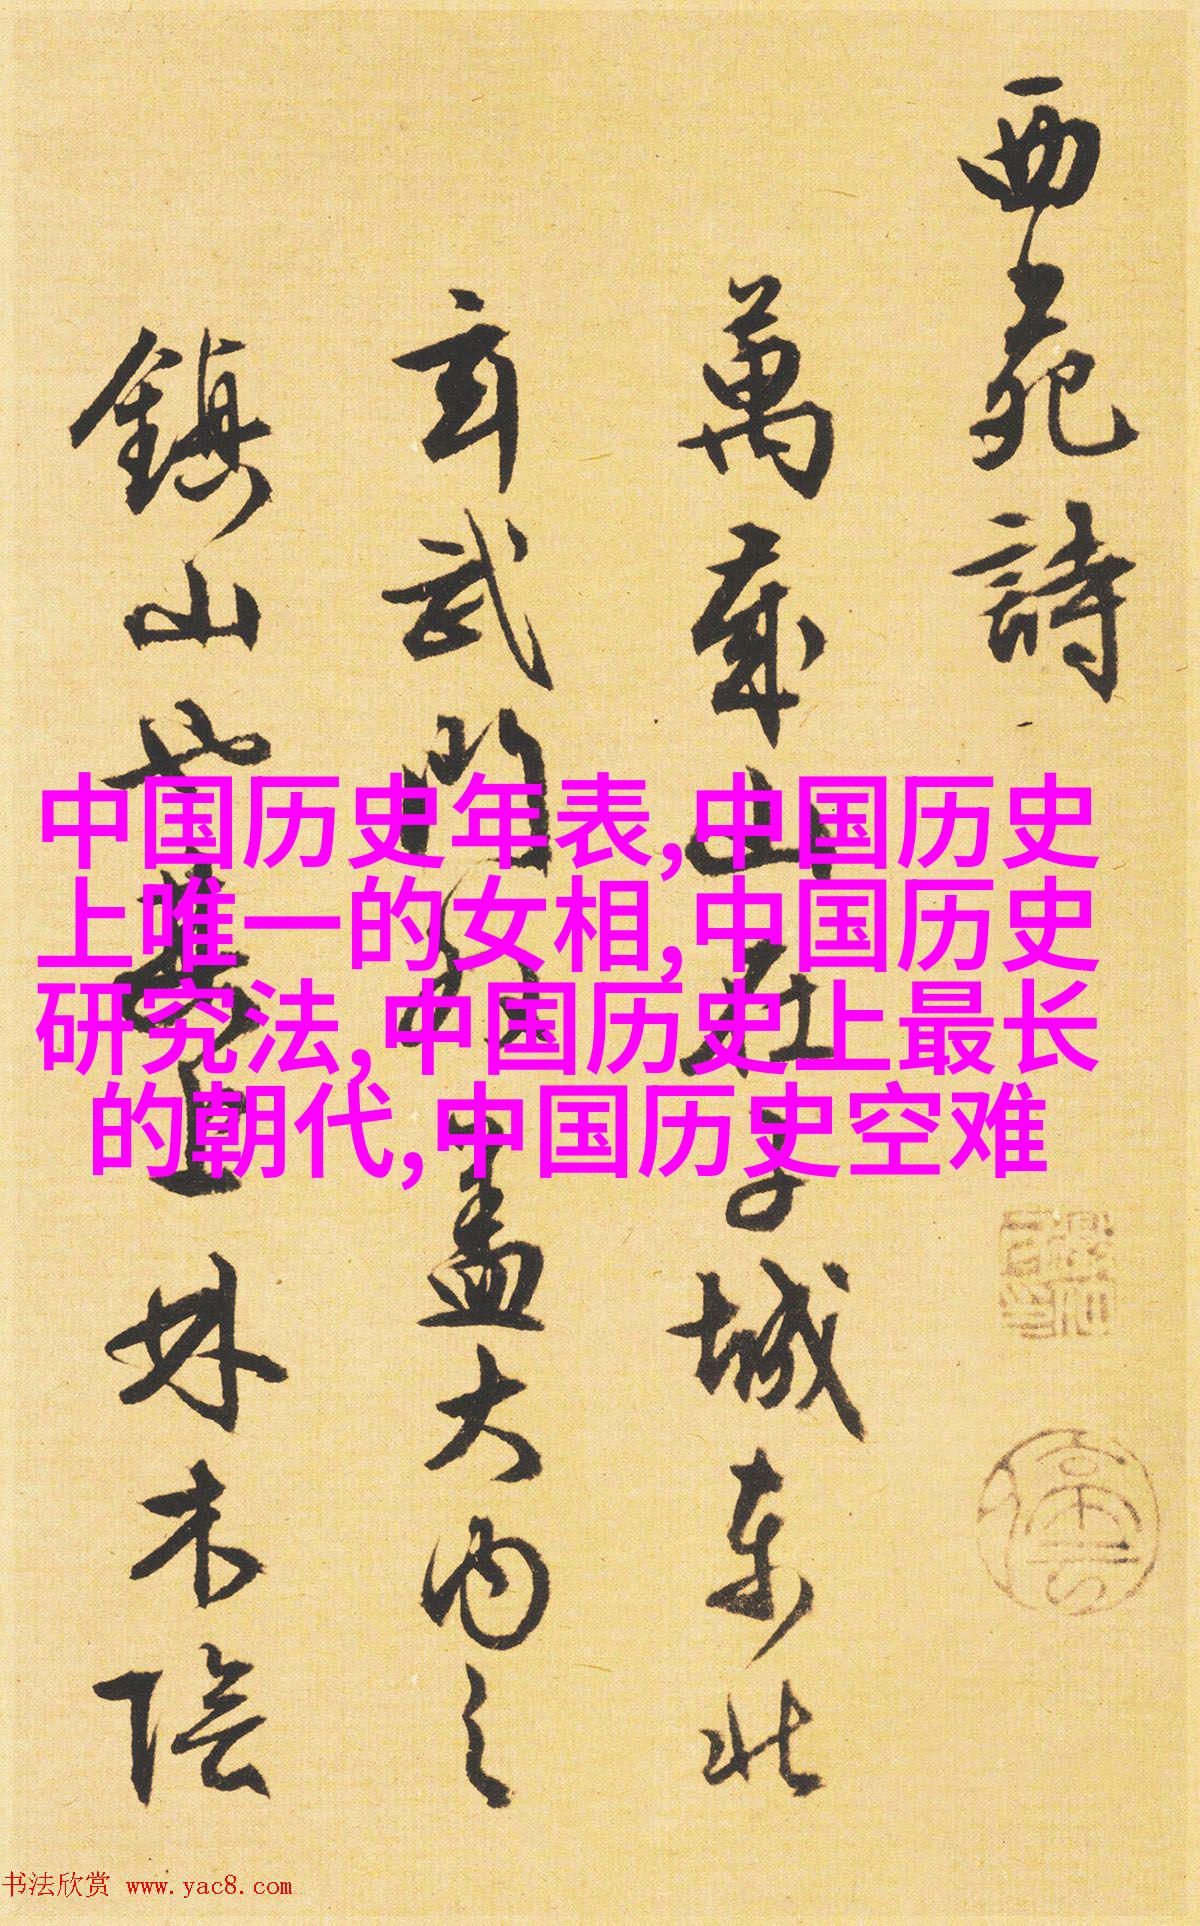 西苑詩
萬歲山在子城東北
玄武門外蓋大內之
鎮山也其上林木陰
中国历史年表,中国历史
上唯一的女相,中国历史
研究法,中国历史上最长
的朝代,中国历史空难
书法欣赏 www.yac8.com